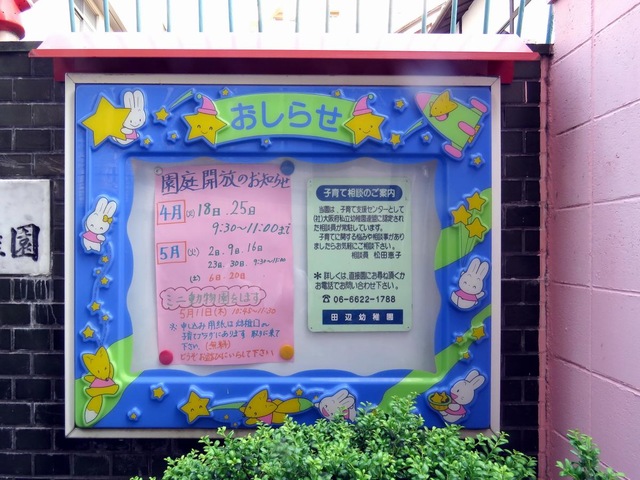 おしらせ
園庭開放のお知らせ
4月 18日.25日
9:30〜11:00まで
5月 (火) 2日.9日.16日
23日.30日. 9:30〜11:00
(土) 6日.20日
ミニ動物園をします
5月11日(木)
※申し込み用紙は幼稚園の
下さい (無料)
どうぞお遊びにいらして下さい
子育て相談のご案内
当園は、子育て支援センターとして
(社)大阪府私立幼稚園連盟に認定され
た相談員が常駐しています。
子育てに関する悩みや相談事があり
ましたらお気軽にご相談下さい。
相談員 松田恵子
＊詳しくは、直接園にお尋ね頂くか
お電話でお問い合わせ下さい。
☎06-6622-1788
田辺幼稚園
園